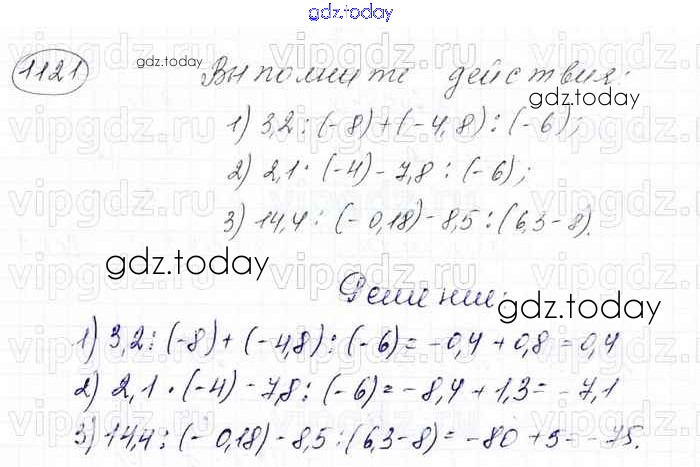 gdz.today
1121 Выполните действия:
1) 3,2 : (-8) + (-4,8) : (-6);
2) 2,1 · (-4) - 7,8 : (-6);
3) 14,4 : (-0,18) - 8,5 : (6,3 - 8).
Решение:
1) 3,2 : (-8) + (-4,8) : (-6) = -0,4 + 0,8 = 0,4
2) 2,1 · (-4) - 7,8 : (-6) = -8,4 + 1,3 = -7,1
3) 14,4 : (-0,18) - 8,5 : (6,3 - 8) = -80 + 5 = -75.
gdz.today
gdz.today
gdz.today
gdz.today
vipgdz.ru